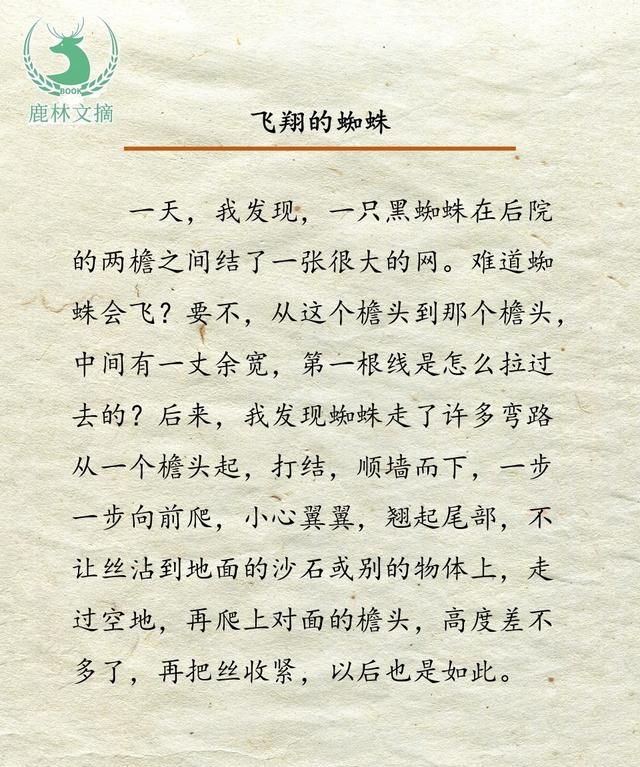 BOOK
鹿林文摘
飞翔的蜘蛛
一天，我发现，一只黑蜘蛛在后院
的两檐之间结了一张很大的网。难道蜘
蛛会飞？要不，从这个檐头到那个檐头，
中间有一丈余宽，第一根线是怎么拉过
去的？后来，我发现蜘蛛走了许多弯路
从一个檐头起，打结，顺墙而下，一步
一步向前爬，小心翼翼，翘起尾部，不
让丝沾到地面的沙石或别的物体上，走
过空地，再爬上对面的檐头，高度差不
多了，再把丝收紧，以后也是如此。